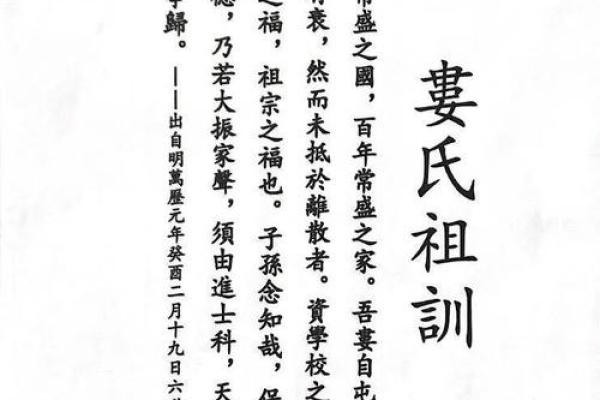 婁氏祖訓
常盛之國,百年常盛之家。吾婁自屯
衰,然而未抵於離散者。資學校之
之福,祖宗之福也。子孫念知哉,保
德,乃若大振家聲,須由進士科,天
歸。——出自明萬歷元年癸酉二月十九日六